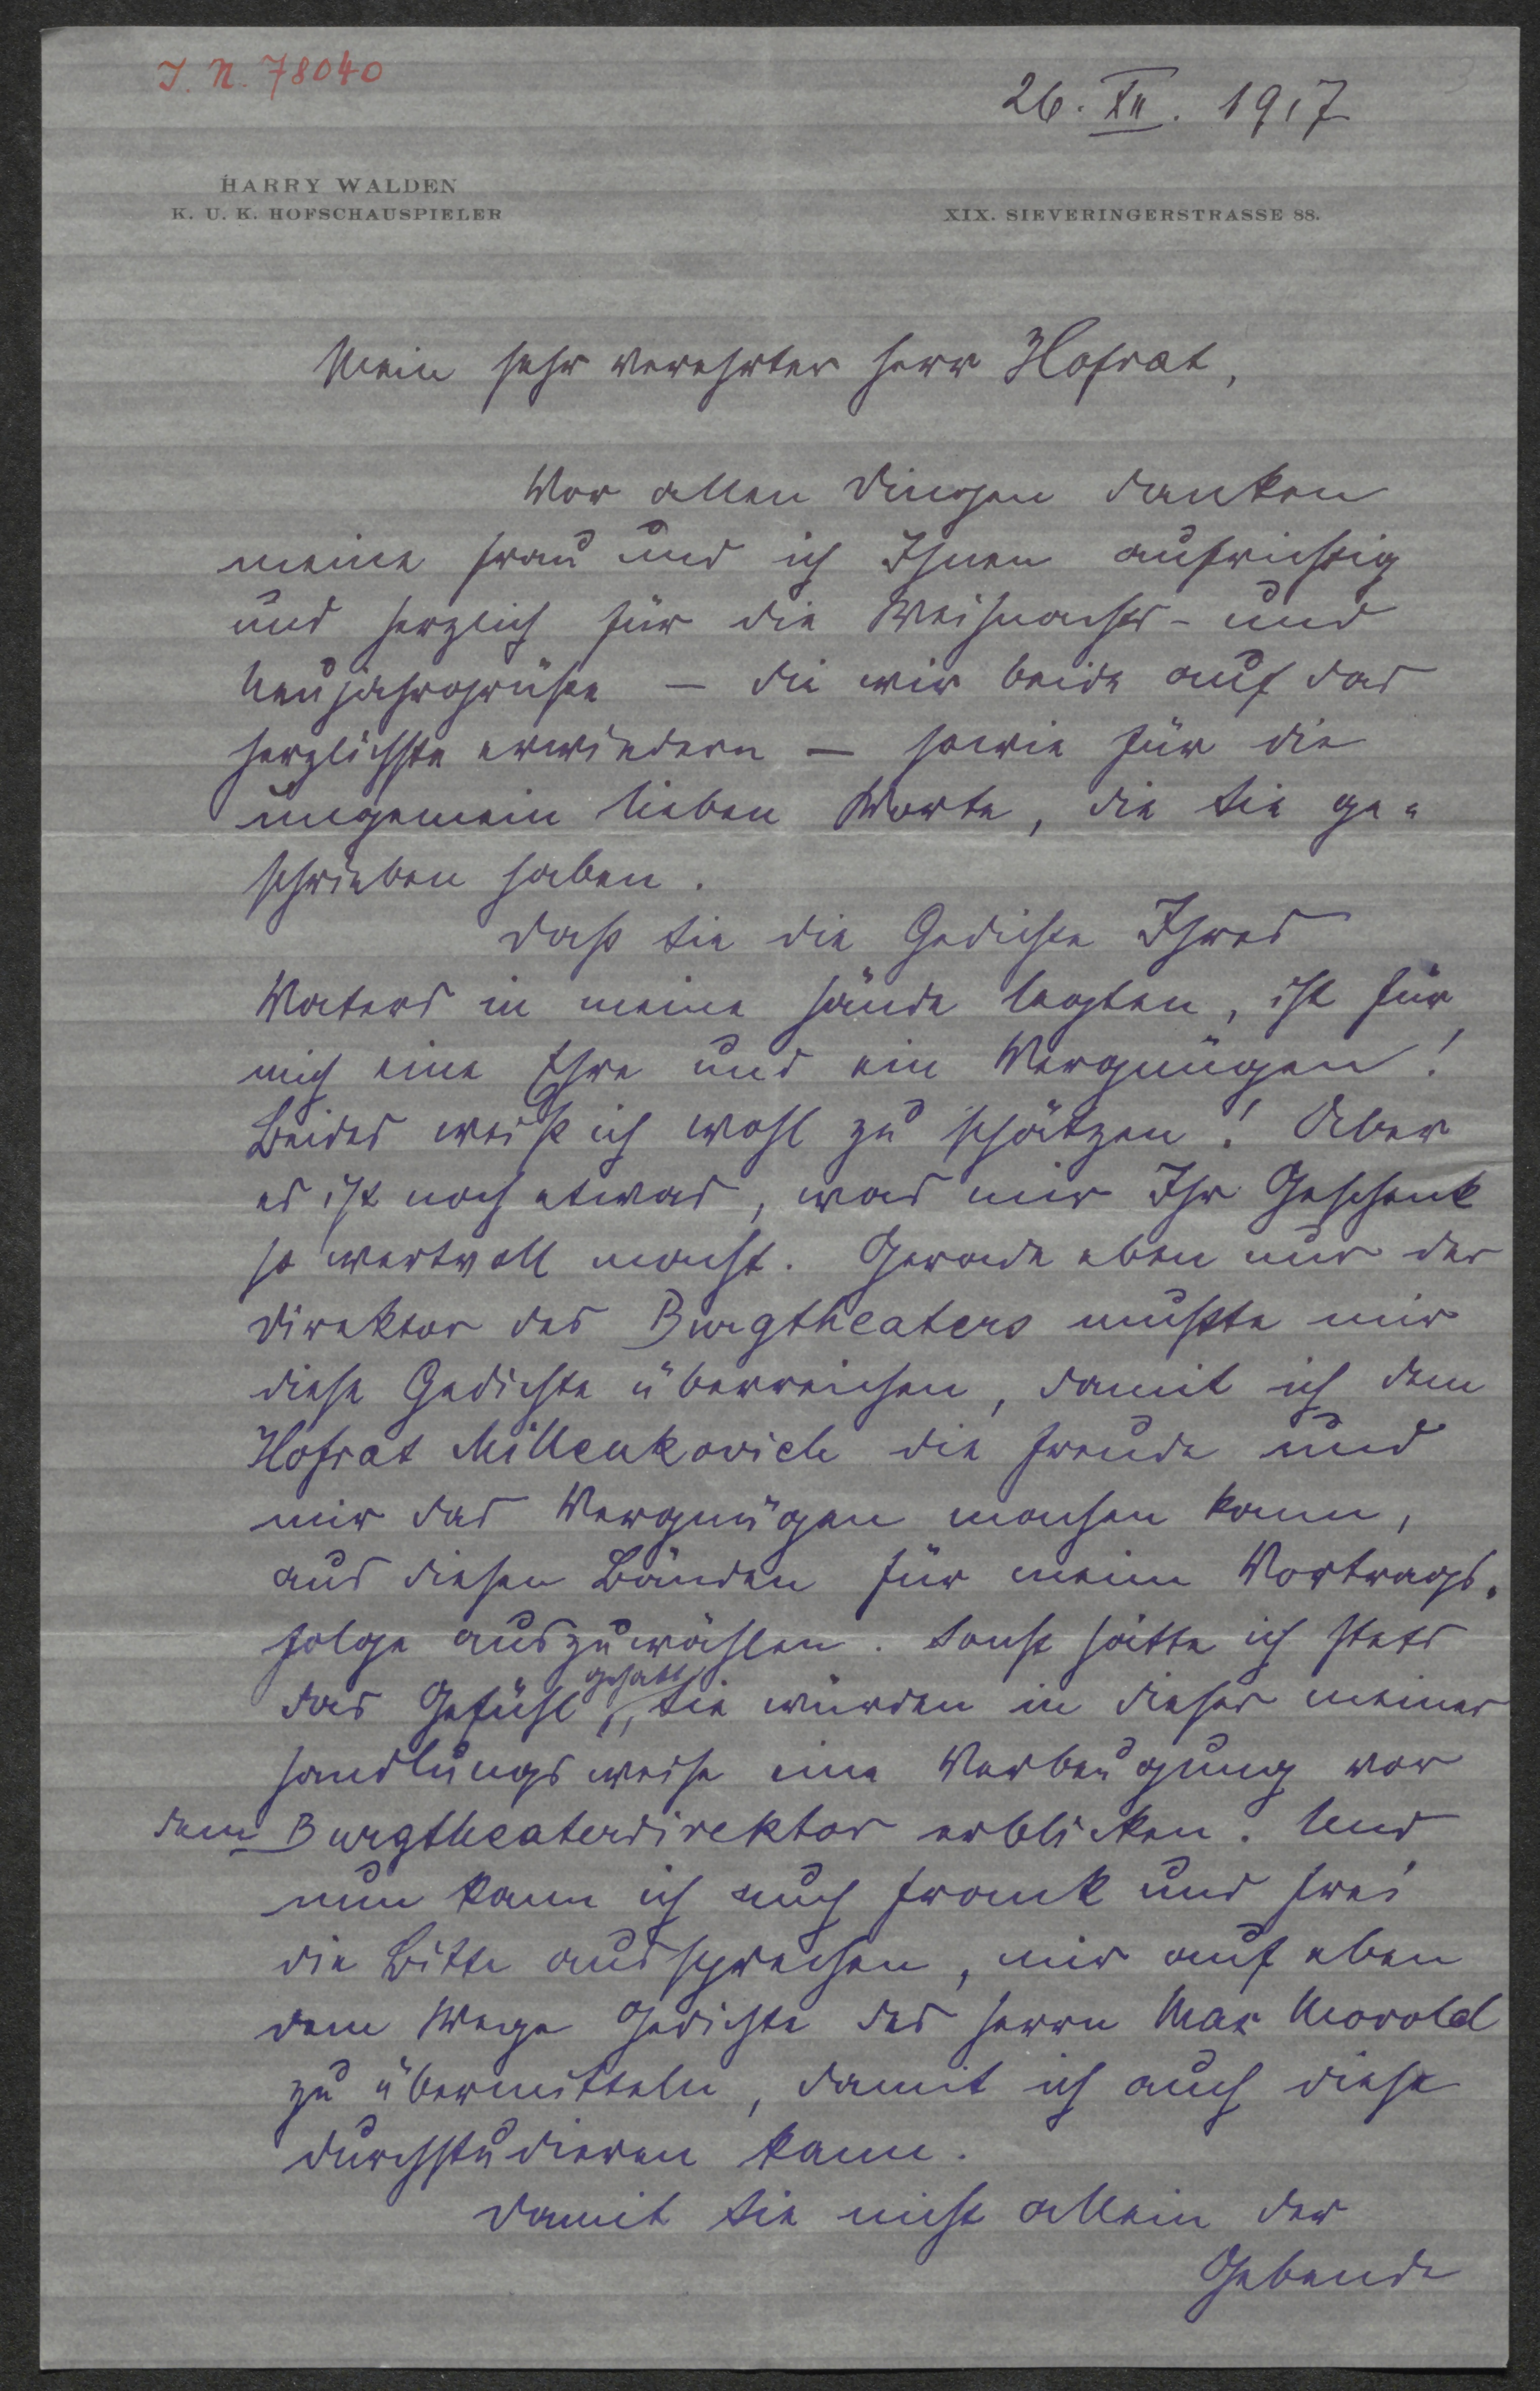 I. N. 78040
26. XII. 1917
HARRY WALDEN
K. U. K. HOFSCHAUSPIELER
XIX. SIEVERINGERSTRASSE 88.
Mein sehr verehrter Herr Hofrat,
Vor allen Dingen danken
meine Frau und ich Ihnen aufrichtig
und herzlich für die Weihnachts- und
Neujahrsgrüße – die wir beide auf das
herzlichste erwiedern – sowie für die
ungemein lieben Worte, die Sie ge-
schrieben haben.
Daß Sie die Gedichte Ihres
Vaters in meine Hände legten, ist für
mich eine Ehre und ein Vergnügen!
Beides weiß ich wohl zu schätzen! Aber
es ist noch etwas, was mir Ihr Geschenk
so wertvoll macht. Gerade eben nur der
Direktor des Burgtheaters mußte mir
diese Gedichte überreichen, damit ich dem
Hofrat Millenkovich die Freude und
mir das Vergnügen machen kann,
aus diesen Bänden für meine Vortrags-
folge auszuwählen. Sonst hätte ich stets
das Gefühl gehabt, Sie würden in dieser meiner
Handlungsweise eine Verbeugung vor
dem Burgtheaterdirektor erblicken. Und
nun kann ich auch frank und frei
die Bitte aussprechen, mir auf eben
dem Wege Gedichte des Herrn Max Morold
zu übermitteln, damit ich auch diese
durchstudieren kann.
Damit Sie nicht allein der
Gebende